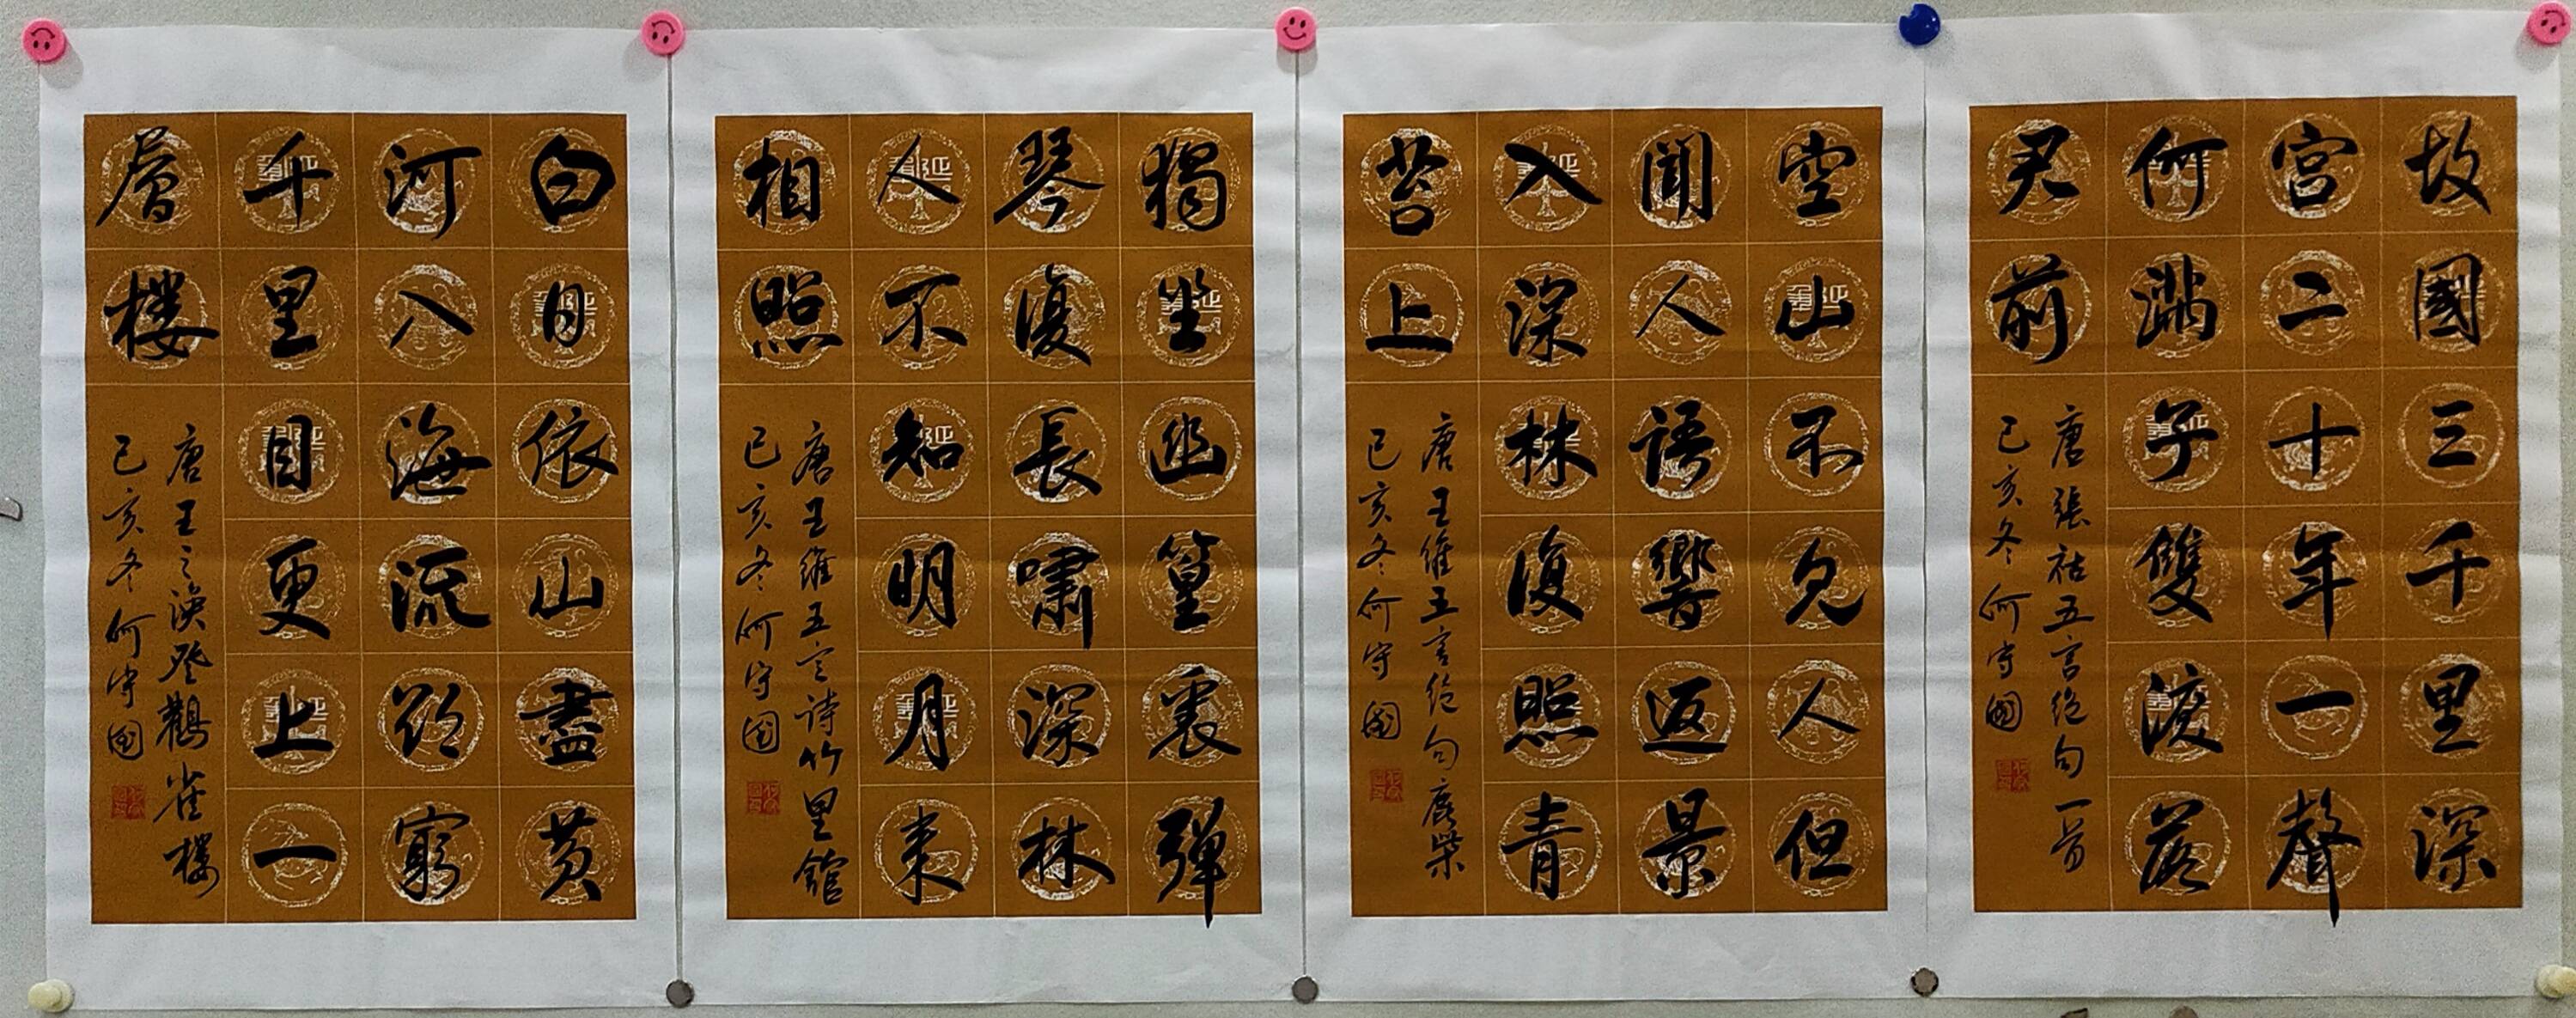 故國三千里深
宮二十年一聲
何滿子雙淚落
君前
唐張祜五言絕句一首
己亥冬何守國
空山不見人但
聞人語響返景
入深林復照青
苔上
唐王維五言絕句鹿柴
己亥冬何守國
獨坐幽篁裏彈
琴復長嘯深林
人不知明月來
相照
唐王維五言诗竹里館
己亥冬何守国
白日依山盡黃
河入海流欲窮
千里目更上一
層樓
唐王之渙登鸛雀樓
己亥冬何守国